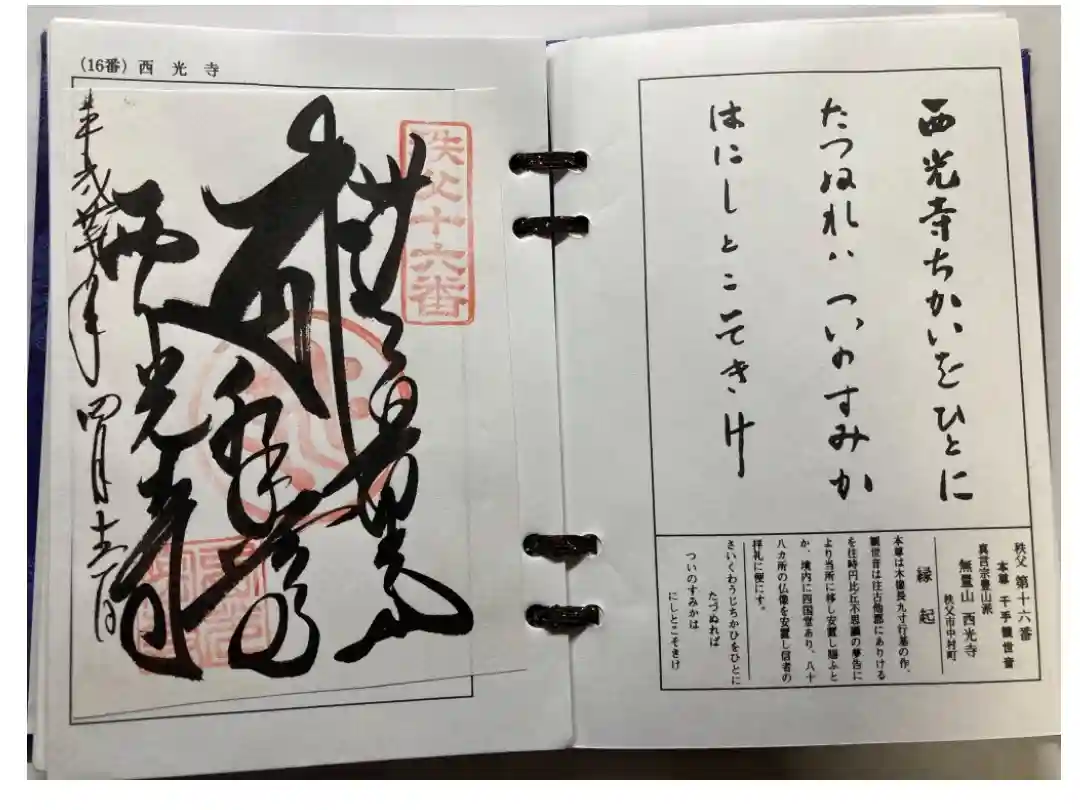 (16番) 西光寺
秩父十六番
西光寺
四月
西光寺ちかいをひとに
たつぬれハついのすみか
はにしとこそきけ
秩父 第十六番
本尊 千手観世音
真言宗豊山派
無量山 西光寺
秩父市中村町
縁起
本尊は木像長九寸行基の作、
観世音は往古他郡にありける
を往時円比丘不思議の夢告に
より当所に移し安置し賜ふと
か、境内に四国堂あり、八十
八カ所の仏像を安置し信者の
拝礼に便にす。
さいくわうじちかひをひとに
たづぬれば
ついのすみかは
にしとこそきけ